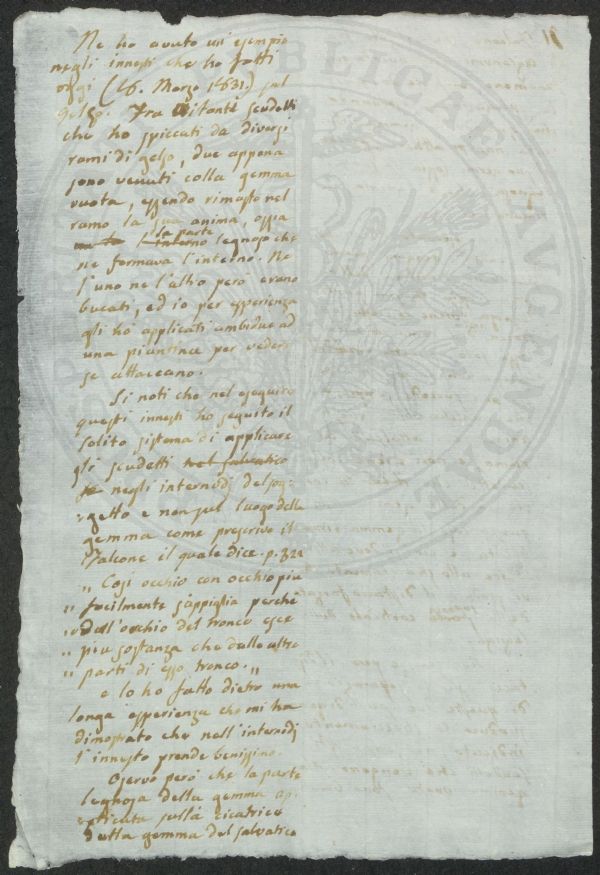 Ne ho avuto un' esempio
negli innesti che ho fatti
oggi (16. Marzo 1831.) sul
Gelso. Fra scudetti
che ho spiccati da diversi
rami di gelso, due appena
sono venuti colla gemma
vuota, essendo rimasto nel
ramo la sua anima, ossia
la parte
legnosa che
ne formava l'interno. Ne
l'uno ne l'altro però erano
bucati, ed io per esperienza
gli ho applicati ambidue ad
una piantina per vedere
se attaccano.
Si noti che nel eseguire
questi innesti ho seguito il
solito sistema di applicare
gli scudetti nel salvatico
negli internodj del sog-
getto e non sul luogo della
gemma come prescrive il
Falcone il quale dice. p. 322
„ Così occhio con occhio più
„ facilmente s'appiglia perchè
„ dall'occhio del tronco esce
„ più sostanza che dalle altre
„ parti di esso tronco. „
e lo ho fatto dietro una
longa esperienza che mi ha
dimostrato che nell'internodj
l'innesto prende benissimo.
Osservo però che la parte
legnosa della gemma ap-
plicata sulla cicatrice
della gemma del salvatico